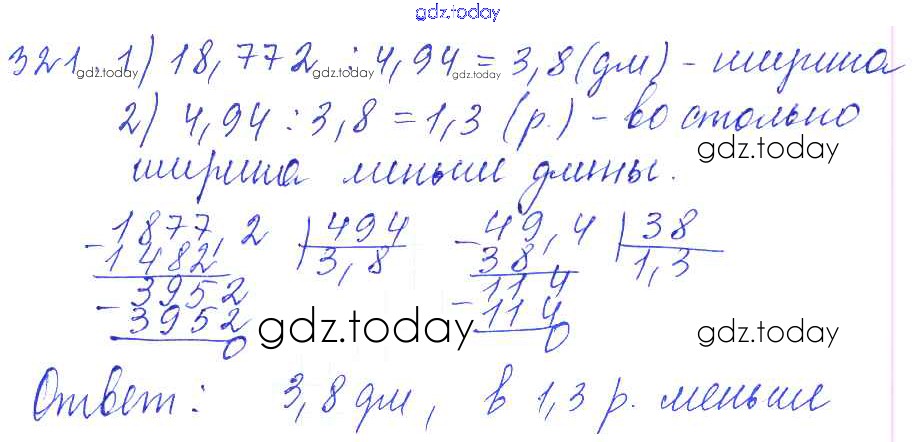 gdz.today
321. 1) 18,772 : 4,94 = 3,8 (дм) - ширина
gdz.today gdz.today gdz.today
2) 4,94 : 3,8 = 1,3 (р.) - во столько
gdz.today
ширина меньше длины.
- 1877,2 | 494 - 49,4 | 38
1482 3,8 38 1,3
- 3952 - 114
3952 114
0 0
gdz.today gdz.today
Ответ: 3,8 дм, в 1,3 р. меньше